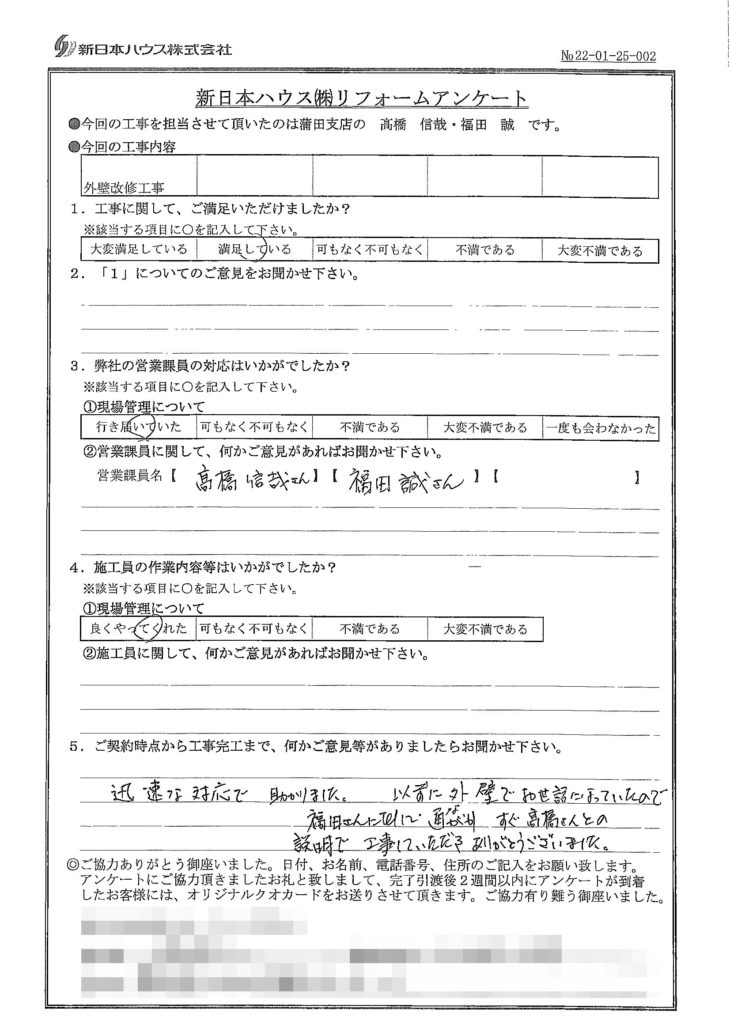 新日本ハウス株式会社
№22-01-25-002
新日本ハウス㈱リフォームアンケート
●今回の工事を担当させて頂いたのは蒲田支店の 高橋 信哉・福田 誠 です。
●今回の工事内容
外壁改修工事
1．工事に関して、ご満足いただけましたか？
※該当する項目に○を記入して下さい。
大変満足している 満足している 可もなく不可もなく 不満である 大変不満である
2．「1」についてのご意見をお聞かせ下さい。
3．弊社の営業課員の対応はいかがでしたか？
※該当する項目に○を記入して下さい。
①現場管理について
行き届いていた 可もなく不可もなく 不満である 大変不満である 一度も会わなかった
②営業課員に関して、何かご意見があればお聞かせ下さい。
営業課員名【 高橋信哉さん 】【 福田誠さん 】【 】
4．施工員の作業内容等はいかがでしたか？
※該当する項目に○を記入して下さい。
①現場管理について
良くやってくれた 可もなく不可もなく 不満である 大変不満である
②施工員に関して、何かご意見があればお聞かせ下さい。
5．ご契約時点から工事完工まで、何かご意見等がありましたらお聞かせ下さい。
迅速な対応で 助かりました。 以前に外壁でお世話になっていたので
福田さんにtelにて すぐ高橋さんとの
説明で工事していただきありがとうございました。
◎ご協力ありがとう御座いました。日付、お名前、電話番号、住所のご記入をお願い致します。
アンケートにご協力頂きましたお礼と致しまして、完了引渡後2週間以内にアンケートが到着
したお客様には、オリジナルクオカードをお送りさせて頂きます。ご協力有り難う御座いました。